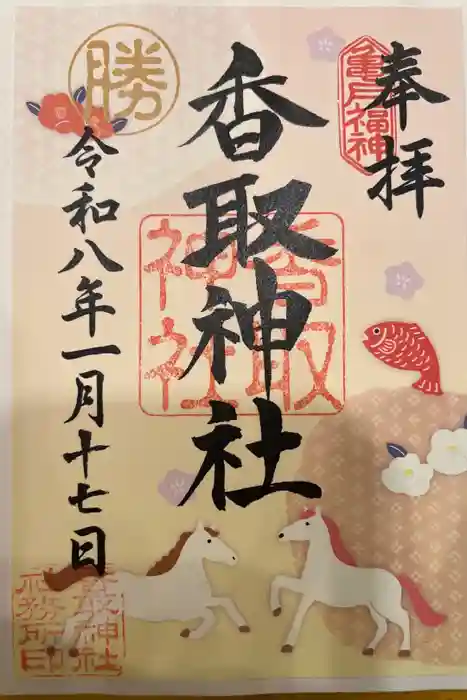 奉拝
亀戸福神
香取神社
香取神社
勝
令和八年一月十七日
香取神社
社務所印